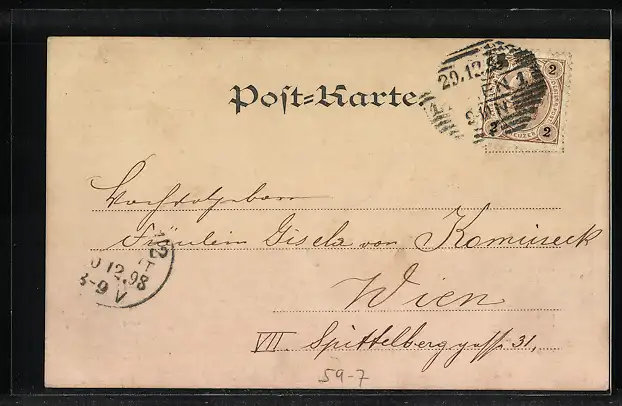 Post-Karte
29.12.98
WIEN 1
2
2
2
KREUZER
Hochwohlgeboren
Fräulein Gisela von Kamineck
Wien
VII. Spittelberggasse 31.
12.98
8-9 V
59-7